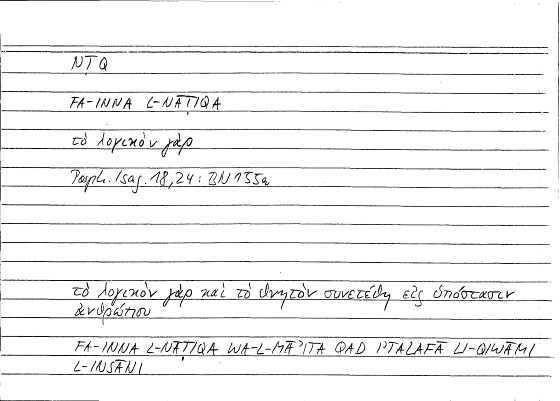 NṬQ
FA-INNA L-NĀṬIQA
τὸ λογικὸν γάρ
Porph. Isag. 18,24 : BN 155a
τὸ λογικὸν γάρ καὶ τὸ θνητὸν συνετέθη εἰς ὑπόστασιν
ἀνθρώπου
FA-INNA L-NĀṬIQA WA-L-MĀʾITA QAD IʾTALAFĀ LI-QIWĀMI
L-INSĀNI